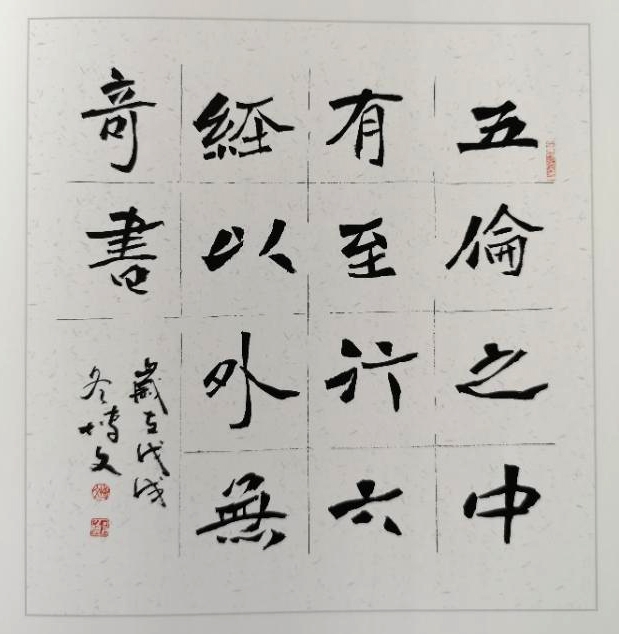 五倫之中
有至行六
經以外無
奇書
歲在戊戌
冬博文